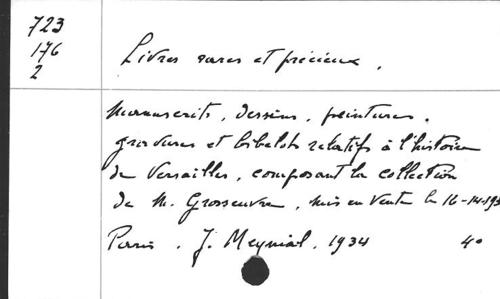 723
176
2
Livres rares et précieux.
Manuscrits, dessins, peintures,
gravures et bibelots relatifs à l'histoire
de Versailles, composant la collection
de M. Grosseuvre, mis en vente le 16-
Paris. J. Meynial, 1934 4°